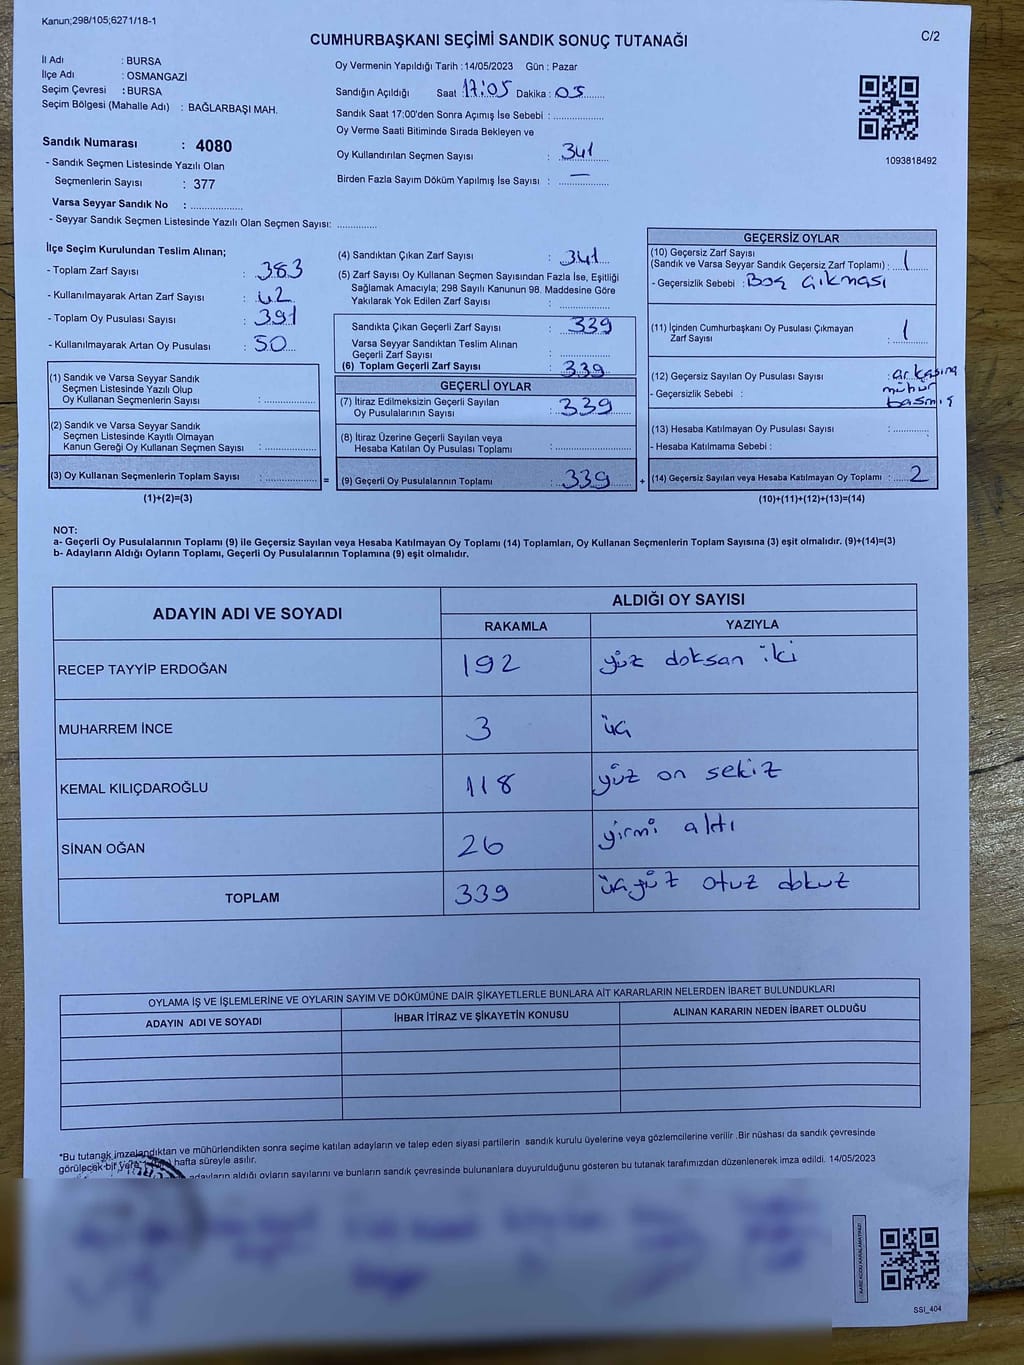 Kanun;298/105;6271/18-1
C/2
CUMHURBAŞKANI SEÇİMİ SANDIK SONUÇ TUTANAĞI
İl Adı : BURSA
İlçe Adı : OSMANGAZİ
Seçim Çevresi : BURSA
Seçim Bölgesi (Mahalle Adı) : BAĞLARBAŞI MAH.
Sandık Numarası : 4080
- Sandık Seçmen Listesinde Yazılı Olan
Seçmenlerin Sayısı : 377
Varsa Seyyar Sandık No : ..................
- Seyyar Sandık Seçmen Listesinde Yazılı Olan Seçmen Sayısı: ..............
Oy Vermenin Yapıldığı Tarih : 14/05/2023 Gün : Pazar
Sandığın Açıldığı Saat : 17:05 Dakika : 05
Sandık Saat 17:00'den Sonra Açımış İse Sebebi : ..................
Oy Verme Saati Bitiminde Sırada Bekleyen ve
Oy Kullandırılan Seçmen Sayısı : 341
Birden Fazla Sayım Döküm Yapılmış İse Sayısı : —
1093818492
İlçe Seçim Kurulundan Teslim Alınan;
- Toplam Zarf Sayısı : 383
- Kullanılmayarak Artan Zarf Sayısı : 42
- Toplam Oy Pusulası Sayısı : 391
- Kullanılmayarak Artan Oy Pusulası : 50
(1) Sandık ve Varsa Seyyar Sandık
Seçmen Listesinde Yazılı Olup
Oy Kullanan Seçmenlerin Sayısı : ..................
(2) Sandık ve Varsa Seyyar Sandık
Seçmen Listesinde Kayıtlı Olmayan
Kanun Gereği Oy Kullanan Seçmen Sayısı : ..................
(3) Oy Kullanan Seçmenlerin Toplam Sayısı : ..................
(1)+(2)=(3)
(4) Sandıktan Çıkan Zarf Sayısı : 341
(5) Zarf Sayısı Oy Kullanan Seçmen Sayısından Fazla İse, Eşitliği
Sağlamak Amacıyla; 298 Sayılı Kanunun 98. Maddesine Göre
Yakılarak Yok Edilen Zarf Sayısı : ..................
Sandıkta Çıkan Geçerli Zarf Sayısı : 339
Varsa Seyyar Sandıktan Teslim Alınan
Geçerli Zarf Sayısı : ..................
(6) Toplam Geçerli Zarf Sayısı : 339
GEÇERLİ OYLAR
(7) İtiraz Edilmeksizin Geçerli Sayılan
Oy Pusulalarının Sayısı : 339
(8) İtiraz Üzerine Geçerli Sayılan veya
Hesaba Katılan Oy Pusulası Toplamı : ..................
= (9) Geçerli Oy Pusulalarının Toplamı : 339 +
GEÇERSİZ OYLAR
(10) Geçersiz Zarf Sayısı
(Sandık ve Varsa Seyyar Sandık Geçersiz Zarf Toplamı) : 1
- Geçersizlik Sebebi : Boş çıkması
(11) İçinden Cumhurbaşkanı Oy Pusulası Çıkmayan
Zarf Sayısı : 1
(12) Geçersiz Sayılan Oy Pusulası Sayısı :
- Geçersizlik Sebebi : arkasına
mühür
basmış
(13) Hesaba Katılmayan Oy Pusulası Sayısı : ..............
- Hesaba Katılmama Sebebi :
(14) Geçersiz Sayılan veya Hesaba Katılmayan Oy Toplamı : 2
(10)+(11)+(12)+(13)=(14)
NOT:
a- Geçerli Oy Pusulalarının Toplamı (9) ile Geçersiz Sayılan veya Hesaba Katılmayan Oy Toplamı (14) Toplamları, Oy Kullanan Seçmenlerin Toplam Sayısına (3) eşit olmalıdır. (9)+(14)=(3)
b- Adayların Aldığı Oyların Toplamı, Geçerli Oy Pusulalarının Toplamına (9) eşit olmalıdır.
ADAYIN ADI VE SOYADI ALDIĞI OY SAYISI
RAKAMLA YAZIYLA
RECEP TAYYİP ERDOĞAN 192 yüz doksan iki
MUHARREM İNCE 3 üç
KEMAL KILIÇDAROĞLU 118 yüz on sekiz
SİNAN OĞAN 26 yirmi altı
TOPLAM 339 üçyüz otuz dokuz
OYLAMA İŞ VE İŞLEMLERİNE VE OYLARIN SAYIM VE DÖKÜMÜNE DAİR ŞİKAYETLERLE BUNLARA AİT KARARLARIN NELERDEN İBARET BULUNDUKLARI
ADAYIN ADI VE SOYADI İHBAR İTİRAZ VE ŞİKAYETİN KONUSU ALINAN KARARIN NEDEN İBARET OLDUĞU
*Bu tutanak imzelandıktan ve mühürlendikten sonra seçime katılan adayların ve talep eden siyasi partilerin sandık kurulu üyelerine veya gözlemcilerine verilir .Bir nüshası da sandık çevresinde
görülecek bir yere hafta süreyle asılır.
adayların aldığı oyların sayılarını ve bunların sandık çevresinde bulunanlara duyurulduğunu gösteren bu tutanak tarafımızdan düzenlenerek imza edildi. 14/05/2023
SSI_404